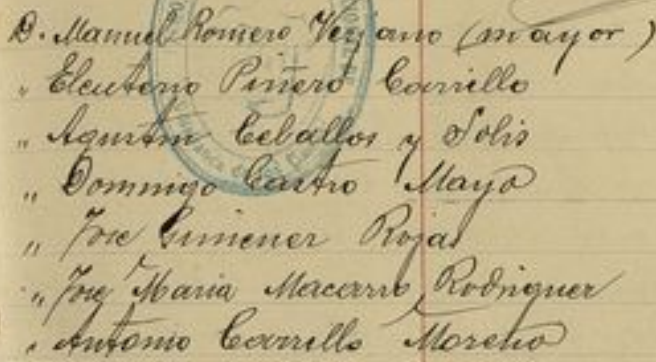 D. Manuel Romero Verjano (mayor)
" Eleuterio Pinero Carrillo
" Agustin Ceballos y Solis
" Domingo Castro Mayo
" Jose Gimener Rojas
" Jose Maria Macarro Rodriguer
" Antonio Carrillo Moreno